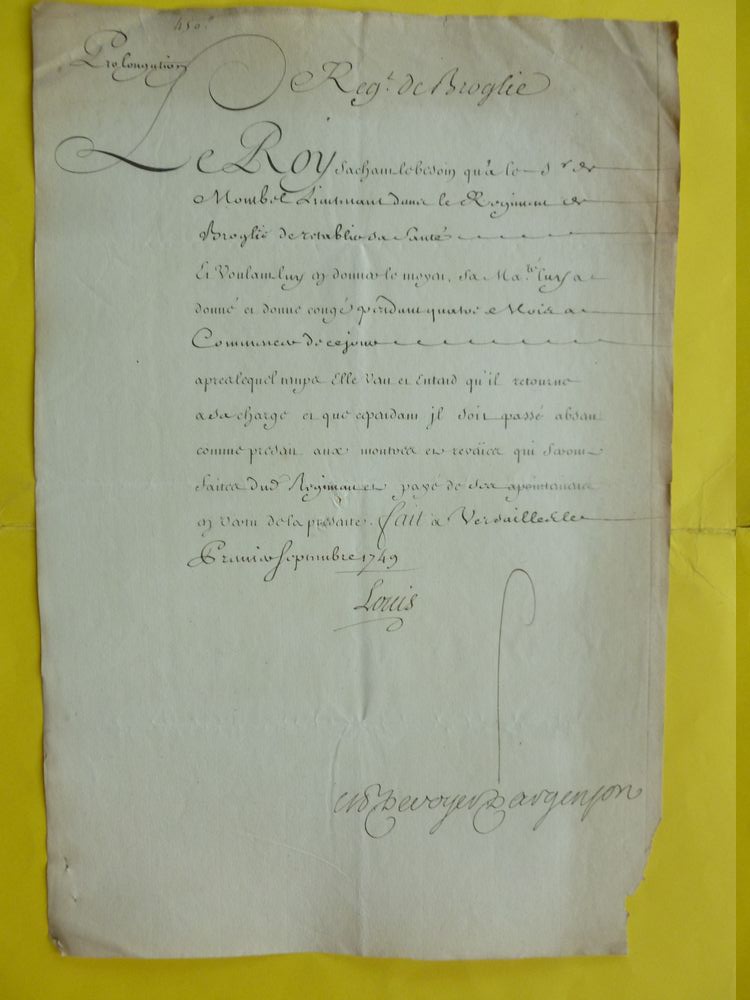 450
Prolongation
Regt. de Broglie
Le Roy sachant le besoin qu'a le Sr. de
Mombel Lieutenant dans le Regiment de
Broglie de retablir sa Santé
Et Voulant luy en donner le moyen, sa Maté. luy a
donné et donne congé pendant quatre Mois a
Commencer de ce jour
apres lequel temps Elle Veut et Entend qu'il retourne
a sa charge et que cependant jl soit passé absent
comme present aux montres et reveües qui seront
faites dud Regiment et payé de ses apointemens
en vertu de la presente. fait a Versailles le
Premier Septembre 1749
Louis
De voyer D'argenson